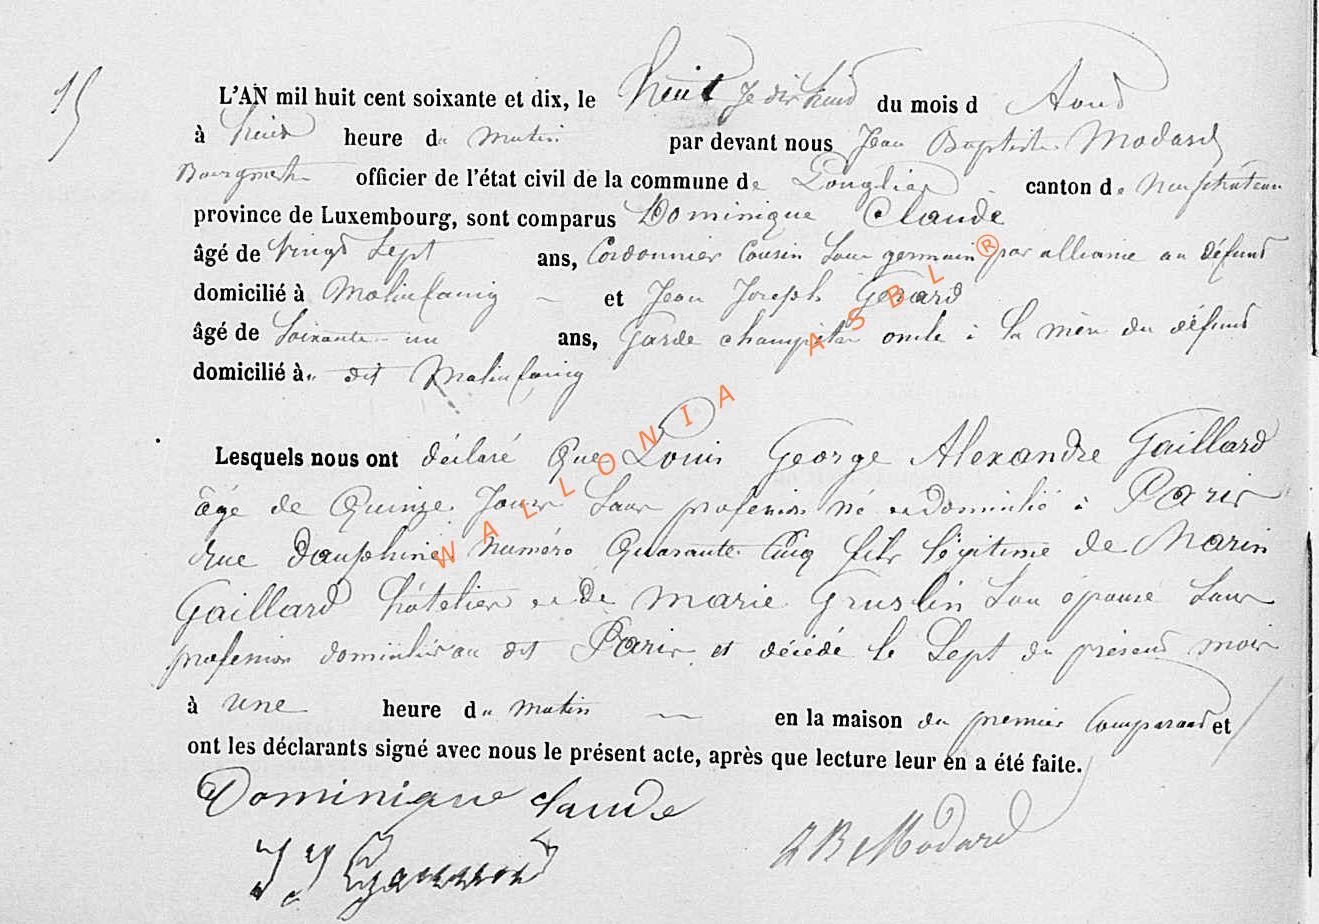 15
L'AN mil huit cent soixante et dix, le huit Je dis huit du mois d Aout
à huit heure du matin par devant nous Jean Baptiste Modard
Bourgmestre officier de l'état civil de la commune de Longlier canton de Neufchateau
province de Luxembourg, sont comparus Dominique Claude
âgé de vingt sept ans, Cordonnier Cousin Sous germain par alliance au défunt
domicilié à Molinfaing et Jean Joseph Gerard
âgé de Soixante un ans, Garde champêtre oncle à la mère du défunt
domicilié à dit Molinfaing
Lesquels nous ont déclaré Que Louis George Alexandre Gaillard
âgé de Quinze Jours Sans profession né et Domicilié à Paris
Rue dauphine Numéro Quarante Cinq fils légitime de Marin
Gaillard hôtelier et de Marie Gruslin Son épouse Sans
profession domiciliés au dit Paris et décédé le Sept du présent mois
à une heure du matin en la maison du premier Comparant et
ont les déclarants signé avec nous le présent acte, après que lecture leur en a été faite.
Dominique Claude
J J Gerard
J B Modard
WALLONIA ASBL ®